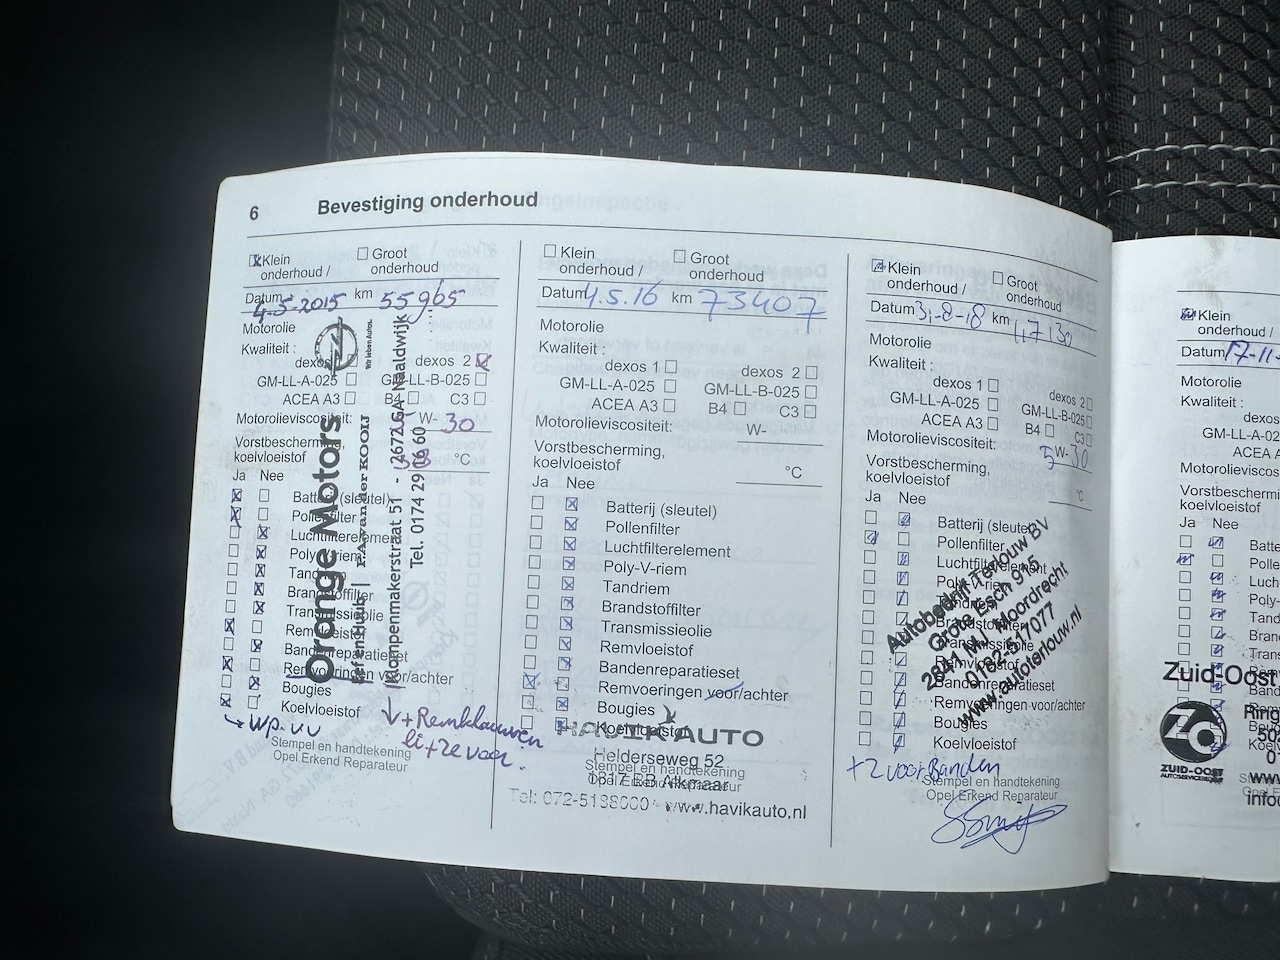 6 Bevestiging onderhoud
Klein onderhoud /
Groot onderhoud
Datum 4-5-2015 km 55965
Motorolie
Kwaliteit :
dexos dexos 2
GM-LL-A-025 GM-LL-B-025
ACEA A3 B4 C3
Motorolieviscositeit: W- 30
Vorstbescherming,
koelvloeistof °C
Ja Nee
Batterij (sleutel)
Pollenfilter
Luchtfilterelement
Poly-V-riem
Tandriem
Brandstoffilter
Transmissieolie
Remvloeistof
Bandenreparatieset
Remvoeringen voor/achter
Bougies
Koelvloeistof
+ Remklauwen
li + re voor.
Stempel en handtekening
Opel Erkend Reparateur
Orange Motors
Wir leben Autos.
Kempenmakerstraat 51 - 2672 GA Naaldwijk
Klein onderhoud /
Groot onderhoud
Datum 4.5.16 km 73407
Motorolie
Kwaliteit :
dexos 1 dexos 2
GM-LL-A-025 GM-LL-B-025
ACEA A3 B4 C3
Motorolieviscositeit: W-
Vorstbescherming,
koelvloeistof °C
Ja Nee
Batterij (sleutel)
Pollenfilter
Luchtfilterelement
Poly-V-riem
Tandriem
Brandstoffilter
Transmissieolie
Remvloeistof
Bandenreparatieset
Remvoeringen voor/achter
Bougies
Koelvloeistof
HAVIK AUTO
Helderseweg 52
Stempel en handtekening
1817 BB Alkmaar
Opel Erkend Reparateur
www.havikauto.nl
Klein onderhoud /
Groot onderhoud
Datum km
Motorolie
Kwaliteit :
dexos 1 dexos 2
GM-LL-A-025 GM-LL-B-025
ACEA A3 B4 C3
Motorolieviscositeit: 5 W- 30
Vorstbescherming,
koelvloeistof °C
Ja Nee
Batterij (sleutel)
Pollenfilter
Luchtfilterelement
Poly-V-riem
Tandriem
Brandstoffilter
Transmissieolie
Remvloeistof
Bandenreparatieset
Remvoeringen voor/achter
Bougies
Koelvloeistof
+ 2 voor Banden
Stempel en handtekening
Opel Erkend Reparateur
Autobedrijf Terlouw BV
Grote Esch 915
2841 MJ Moordrecht
0182-517077
www.autoterlouw.nl
Klein
onderhoud /
Datum 17-11-
Motorolie
Kwaliteit :
dexos
GM-LL-A-02
ACEA A
Motorolieviscosit
Vorstbeschermi
koelvloeistof
Ja Nee
Batte
Polle
Luch
Poly-
Tand
Bran
Trans
Zuid-Oost
ZO
ZUID-OOST
AUTOSERVICEBEDRIJF
Ring
www
info